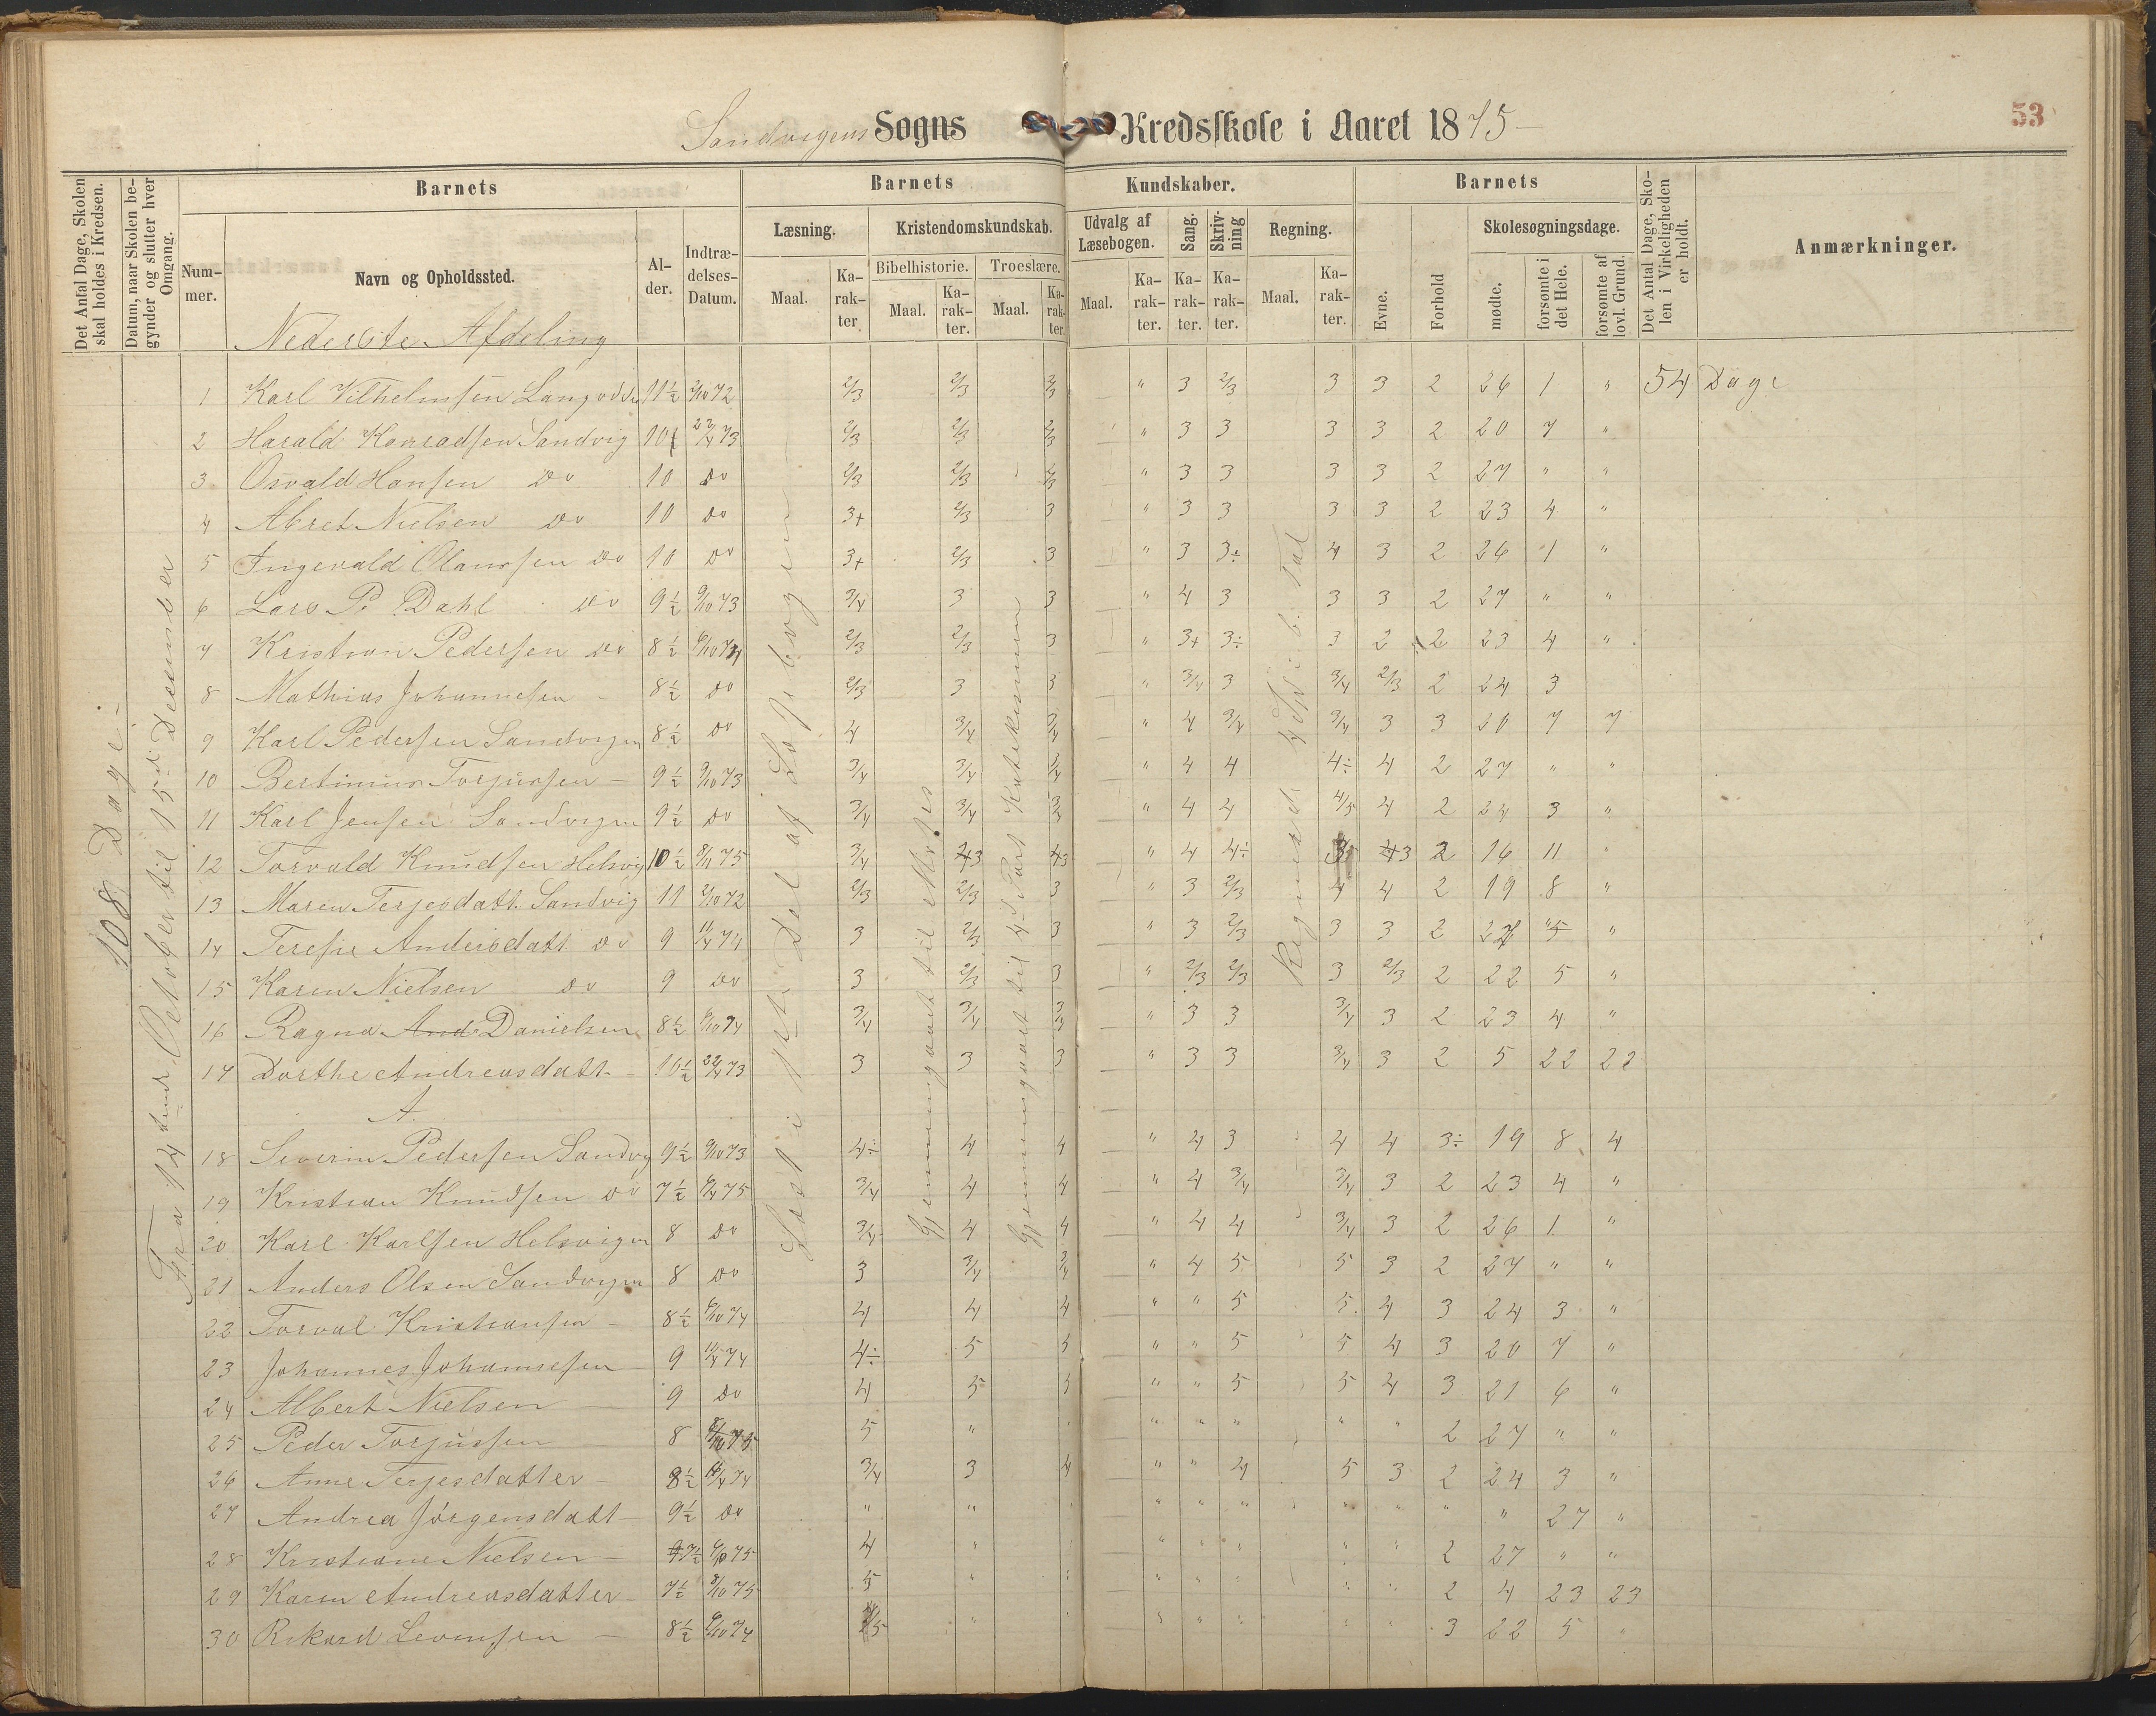 Sandvigens Sogns Kredsskole i Aaret 1875
53
Det Antal Dage, Skolen skal holdes i Kredsen.
Datum, naar Skolen begynder og slutter hver Omgang.
Barnets
Barnets
Kundskaber.
Barnets
Det Antal Dage, Skolen i Virkeligheden er holdt.
Anmærkninger.
Nummer.
Navn og Opholdssted.
Alder.
Indtrædelses-Datum.
Læsning.
Kristendomskundskab.
Udvalg af Læsebogen.
Sang.
Skrivning
Regning.
Evne.
Forhold
Skolesøgningsdage.
Bibelhistorie.
Troeslære.
Maal.
Karakter
Maal.
Karakter.
Maal.
Karakter.
Maal.
Karakter.
Karakter.
Karakter.
Maal.
Karakter.
mødte.
forsømte i det Hele.
forsømte af lovl. Grund.
108 Dage
Fra 12 October til 15d December
Læst i 1ste Del af Læsebogen
Gjennemgaaet til Moses
Gjennemgaaet til 4d Part Katekismen
Nederste Afdeling
1 Karl Vilhelmsen 11½ 2/10 72 2/3 2/3 2/3 " 3 2/3 3 3 2 26 1 " 54 Dage
2 Harald Konradsen Sandvig 10 22/4 73 2/3 2/3 2/3 " 3 3 3 3 2 20 7 "
3 Osvald Hansen Do 10 Do 2/3 2/3 2/3 " 3 3 3 3 2 27 " "
4 Abret Nielsen Do 10 Do 3+ 2/3 3 " 3 3 3 3 2 23 4 "
5 Ingevald Olaussen Do 10 Do 3+ 2/3 3 " 3 3÷ 4 3 2 26 1 "
6 Lars P. Dahl Do 9½ 9/10 73 3/4 3 3 " 4 3 3 3 2 27 " "
7 Kristian Pedersen Do 8½ 6/10 74 2/3 2/3 3 " 3+ 3÷ 3 2 2 23 4 "
8 Mathias Johannesen 8½ Do 2/3 3 3 " 3/4 3 3/4 2/3 2 24 3
9 Karl Pedersen Sandvigen 8½ Do 4 3/4 3/4 " 4 3/4 3/4 3 3 20 7 7
10 Bertinius Torjussen 9½ 9/10 73 3/4 3/4 3/4 " 4 4 4÷ 4 2 27 " "
11 Karl Jensen Sandvigen 9½ Do 3/4 3/4 3/4 " 4 4 4/5 4 2 24 3 "
12 Torvald Knudsen Helsvig 10½ 8/11 75 3/4 3 3 " 4 4÷ 3 3 2 16 11 "
13 Maren Terjesdatt. Sandvig 11 2/10 72 2/3 2/3 3 " 3 2/3 4 4 2 19 8 "
14 Teresie Andersdatt Do 9 11/4 74 3 2/3 3 " 3 2/3 3 3 2 27 " "
15 Karen Nielsen Do 9 Do 3 2/3 3 " 2/3 2/3 3 2/3 2 22 5 "
16 Ragna And Danielsen 8½ 6/10 74 3/4 3/4 3/3 " 3 3 3/4 3 2 23 4 "
17 Dorthe Andreasdatt 10½ 22/4 73 3 3 3 " 3 3 3/4 3 2 5 22 22
A.
18 Severin Pedersen Sandvig 9½ 9/10 73 4÷ 4 4 " 4 3 4 4 3÷ 19 8 4
19 Kristian Knudsen Do 7½ 6/4 75 3/4 4 4 " 4 3/4 3/4 3 2 23 4 "
20 Karl Karlsen Helsvigen 8 Do 3/4 4 4 " 4 4 3/4 3 2 26 1 "
21 Anders Olsen Sandvigen 8 Do 3 3/4 3/4 " 4 5 5 3 2 27 " "
22 Torval Kristiansen 8½ 6/10 74 4 4 4 " " 5 5 4 3 24 3 "
23 Johannes Johannesen 9 11/4 74 4÷ 5 5 " " 5 5 4 3 20 7 "
24 Albert Nielsen 9 Do 4 5 5 " " 5 5 4 3 21 6 "
25 Peder Torjussen 8 8/10 75 5 " " " " " " 2 27 " "
26 Anne Terjesdatter 8½ 11/4 74 3/4 3 4 " " 4 5 3 2 24 3 "
27 Andrea Jörgensdatt 9½ Do " " " " " " " " " " 27 "
28 Kristiane Nielsen 7½ 6/10 75 4 " " " " " " 2 27 " "
29 Karen Andreasdatter 7½ 8/10 75 5 " " " " " " 2 4 23 23
30 Rikard Levensen 8½ 6/10 74 5 " " " " " " 3 22 5 "